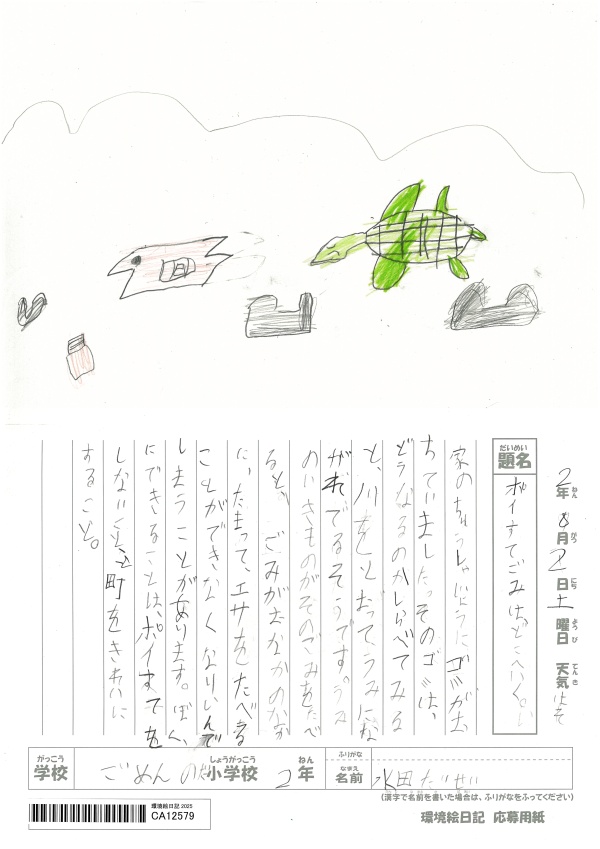 2年ねん 8月がつ 2日にち 土曜日ようび 天気てんき
題名だいめい ポイすてごみは、どこへいく。
家のちゅうしゃじょうにゴミがお
ちていました。そのゴミは、
どうなるのかしらべてみる
と、川をとおってうみにな
がれでるそうです。うみ
のいきものがそのごみをたべ
ると、ごみがおなかのなか
に、たまって、エサをたべる
ことができなくなりしんで
しまうことがあります。ぼく
にできることは、ポイすてを
しないことと町をきれいに
すること。
がっこう しょうがっこう ねん ふりがな
学校 ごめんの 小学校 2年 なまえ 名前 水田たいせい
(漢字で名前を書いた場合は、ふりがなをふってください)
環境絵日記 2025
CA12579
環境絵日記 応募用紙